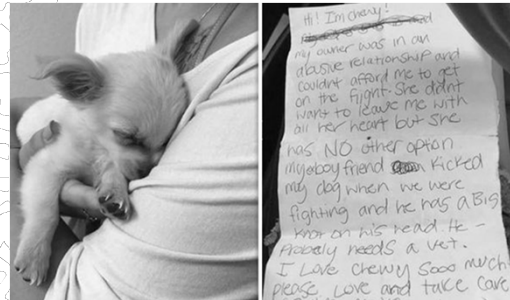 Hi! I'm chewy!
my owner was in an
abusive relationship and
couldnt afford me to get
on the flight. She didnt
want to leave me with
all her heart but she
has NO other option
my boyfriend kicked
my dog when we were
fighting and he has a BIG
knot on his head. He
Probely needs a vet.
I Love chewy Sooo much
please Love and take care